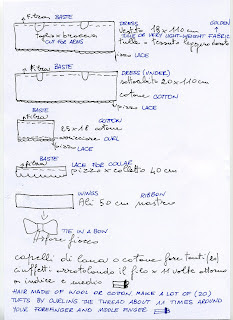 filza
BASTE
DRESS
GOLDEN
vestito 18 x 110 cm
taglio x braccia
CUT FOR ARMS
TULLE OR VERY LIGHT-WEIGHT FABRIC
tulle o tessuto leggero dorato
pizzo LACE
filza
BASTE
DRESS (UNDER)
sottoabito 20 x 110 cm
cotone COTTON
pizzo LACE
filza
BASTE
COTTON
25 x 18 cotone
arricciare CURL
pizzo LACE
filza
BASTE
LACE FOR COLLAR
pizzo x colletto 40 cm
WINGS
RIBBON
Ali 50 cm nastro
TIE IN A BOW
fiocco
capelli di lana o cotone fare tanti (20)
ciuffetti arrotolando il filo x 11 volte attorno
a indice e medio
HAIR MADE OF WOOL OR COTTON MAKE A LOT OF (20)
TUFTS BY CURLING THE THREAD ABOUT 11 TIMES AROUND
YOUR FOREFINGER AND MIDDLE FINGER